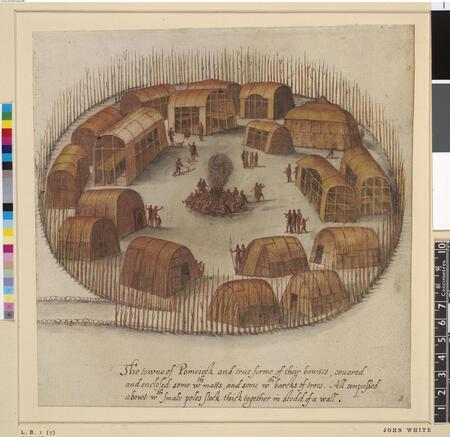 The towne of Pomeiock and true forme of their howses, couered
and enclosed some wth matts, and some wth barcks of trees. All compassed
abowt wth smale poles stock thick together in stedd of a wall.
L. B. 1 (7)
JOHN WHITE
Centimetres